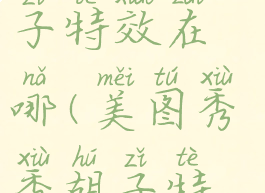 zi tè xiào zài
子特效在
nǎ ( měi tú xiù
哪(美图秀
xiù hú zǐ tè
秀胡子特